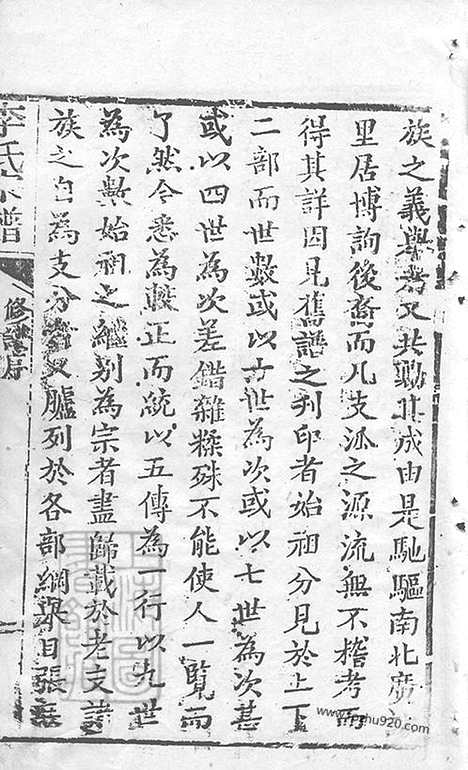 族之義舉者又共勷其成由是馳驅南北廣
里居博詢後裔而凡支派之源流無不稽考而
得其詳因見舊譜之刊印者始祖分見於上下
二部而世數或以六世為次或以七世為次甚
或以四世為次差錯雜糅殊不能使人一覽而
了然今悉為較正而統以五傳為一行以九世
為次數始祖之繼別為宗者盡歸載於老支譜
族之自為支分者又臚列於各部綱舉目張
李氏宗譜
修譜序
一
www.jiapu920.com